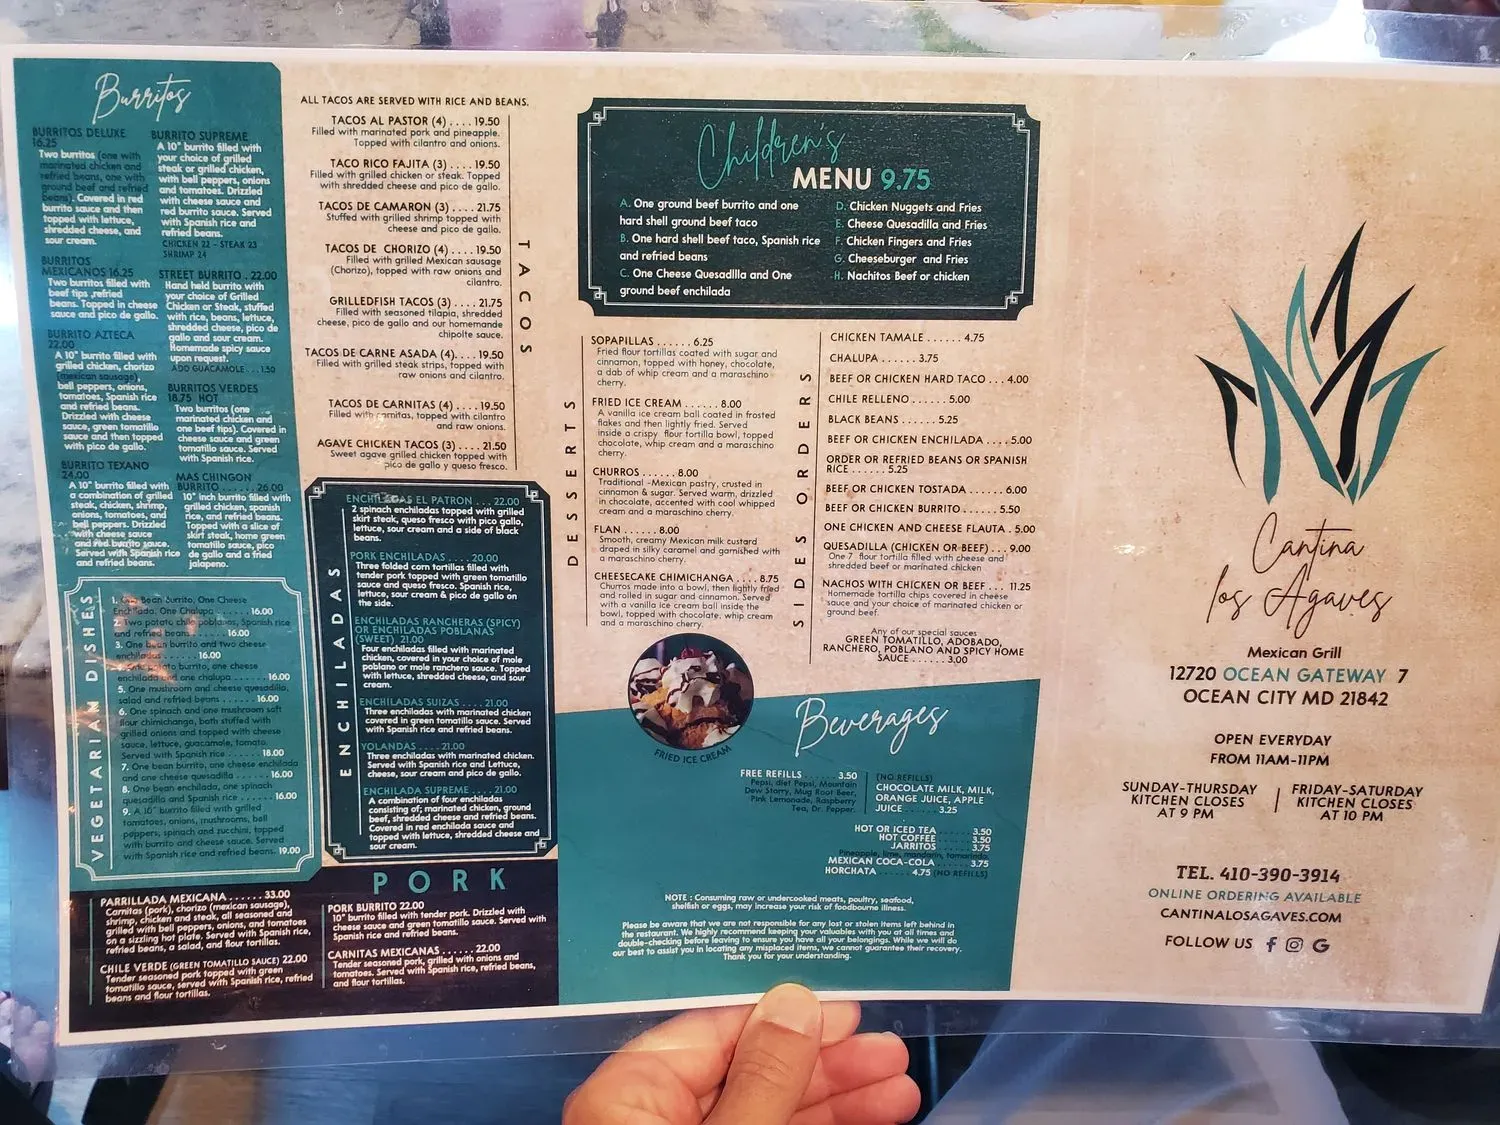 Burritos
BURRITOS DELUXE
16.25
Two burritos (one with
marinated chicken and
refried beans, one with
ground beef and refried
beans). Covered in red
burrito sauce and then
topped with lettuce,
shredded cheese, and
sour cream.
BURRITOS
MEXICANOS 16.25
Two burritos filled with
beef tips ,refried
beans. Topped in cheese
sauce and pico de gallo.
BURRITO AZTECA
22.00
A 10" burrito filled with
grilled chicken, chorizo
(mexican sausage),
bell peppers, onions,
tomatoes, Spanish rice
and refried beans.
Drizzled with cheese
sauce, green tomatillo
sauce and then topped
with pico de gallo.
BURRITO TEXANO
24.00
A 10" burrito filled with
a combination of grilled
steak, chicken, shrimp,
onions, tomatoes, and
bell peppers. Drizzled
with cheese sauce
and red burrito sauce.
Served with Spanish rice
and refried beans.
BURRITO SUPREME
A 10" burrito filled with
your choice of grilled
steak or grilled chicken,
with bell peppers, onions
and tomatoes. Drizzled
with cheese sauce and
red burrito sauce. Served
with Spanish rice and
refried beans.
CHICKEN 22 - STEAK 23
SHRIMP 24
STREET BURRITO . 22.00
Hand held burrito with
your choice of Grilled
Chicken or Steak, stuffed
with rice, beans, lettuce,
shredded cheese, pico de
gallo and sour cream.
Homemade spicy sauce
upon request.
ADD GUACAMOLE . . . 1.50
BURRITOS VERDES
18.75 HOT
Two burritos (one
marinated chicken and
one beef tips). Covered in
cheese sauce and green
tomatillo sauce. Served
with Spanish rice.
MAS CHINGON
BURRITO . . . . . . 26.00
10" inch burrito filled with
grilled chicken, spanish
rice, and refried beans.
Topped with a slice of
skirt steak, home green
tomatillo sauce, pico
de gallo and a fried
jalapeno.
VEGETARIAN DISHES
1. One Bean Burrito, One Cheese
Enchilada, One Chalupa . . . . . . 16.00
2. Two potato chile poblanos, Spanish rice
and refried beans . . . . . . 16.00
3. One bean burrito and two cheese
enchiladas . . . . . . 16.00
4. One potato burrito, one cheese
enchilada and one chalupa . . . . . . 16.00
5. One mushroom and cheese quesadilla,
salad and refried beans . . . . . . 16.00
6. One spinach and one mushroom soft
flour chimichanga, both stuffed with
grilled onions and topped with cheese
sauce, lettuce, guacamole, tomato.
Served with Spanish rice . . . . . . 18.00
7. One bean burrito, one cheese enchilada
and one cheese quesadilla . . . . . . 16.00
8. One bean enchilada, one spinach
quesadilla and Spanish rice . . . . . . 16.00
9. A 10" burrito filled with grilled
tomatoes, onions, mushrooms, bell
peppers, spinach and zucchini, topped
with burrito and cheese sauce. Served
with Spanish rice and refried beans. 19.00
ALL TACOS ARE SERVED WITH RICE AND BEANS.
TACOS
TACOS AL PASTOR (4) . . . . 19.50
Filled with marinated pork and pineapple.
Topped with cilantro and onions.
TACO RICO FAJITA (3) . . . . 19.50
Filled with grilled chicken or steak. Topped
with shredded cheese and pico de gallo.
TACOS DE CAMARON (3) . . . . 21.75
Stuffed with grilled shrimp topped with
cheese and pico de gallo.
TACOS DE CHORIZO (4) . . . . 19.50
Filled with grilled Mexican sausage
(Chorizo), topped with raw onions and
cilantro.
GRILLEDFISH TACOS (3) . . . . 21.75
Filled with seasoned tilapia, shredded
cheese, pico de gallo and our homemande
chipolte sauce.
TACOS DE CARNE ASADA (4). . . . 19.50
Filled with grilled steak strips, topped with
raw onions and cilantro.
TACOS DE CARNITAS (4) . . . . 19.50
Filled with carnitas, topped with cilantro
and raw onions.
AGAVE CHICKEN TACOS (3) . . . . 21.50
Sweet agave grilled chicken topped with
pico de gallo y queso fresco.
ENCHILADAS
ENCHILADAS EL PATRON . . . 22.00
2 spinach enchiladas topped with grilled
skirt steak, queso fresco with pico gallo,
lettuce, sour cream and a side of black
beans.
PORK ENCHILADAS . . . . 20.00
Three folded corn tortillas filled with
tender pork topped with green tomatillo
sauce and queso fresco. Spanish rice,
lettuce, sour cream & pico de gallo on
the side.
ENCHILADAS RANCHERAS (SPICY)
OR ENCHILADAS POBLANAS
(SWEET) 21.00
Four enchiladas filled with marinated
chicken, covered in your choice of mole
poblano or mole ranchero sauce. Topped
with lettuce, shredded cheese, and sour
cream.
ENCHILADAS SUIZAS . . . . 21.00
Three enchiladas with marinated chicken
covered in green tomatillo sauce. Served
with Spanish rice and refried beans.
YOLANDAS . . . . 21.00
Three enchiladas with marinated chicken.
Served with Spanish rice and Lettuce,
cheese, sour cream and pico de gallo.
ENCHILADA SUPREME . . . . 21.00
A combination of four enchiladas
consisting of; marinated chicken, ground
beef, shredded cheese and refried beans.
Covered in red enchilada sauce and
topped with lettuce, shredded cheese and
sour cream.
PORK
PARRILLADA MEXICANA . . . . . . 33.00
Carnitas (pork), chorizo (mexican sausage),
shrimp, chicken and steak, all seasoned and
grilled with bell peppers, onions, and tomatoes
on a sizzling hot plate. Served with Spanish rice,
refried beans, a salad, and flour tortillas.
CHILE VERDE (GREEN TOMATILLO SAUCE) 22.00
Tender seasoned pork topped with green
tomatillo sauce, served with Spanish rice, refried
beans and flour tortillas.
PORK BURRITO 22.00
10" burrito filled with tender pork. Drizzled with
cheese sauce and green tomatillo sauce. Served with
Spanish rice and refried beans.
CARNITAS MEXICANAS . . . . . . 22.00
Tender seasoned pork, grilled with onions and
tomatoes. Served with Spanish rice, refried beans,
and flour tortillas.
Children's
MENU 9.75
A. One ground beef burrito and one
hard shell ground beef taco
B. One hard shell beef taco, Spanish rice
and refried beans
C. One Cheese Quesadilla and One
ground beef enchilada
D. Chicken Nuggets and Fries
E. Cheese Quesadilla and Fries
F. Chicken Fingers and Fries
G. Cheeseburger and Fries
H. Nachitos Beef or chicken
DESSERTS
SOPAPILLAS . . . . . . 6.25
Fried flour tortillas coated with sugar and
cinnamon, topped with honey, chocolate,
a dab of whip cream and a maraschino
cherry.
FRIED ICE CREAM . . . . . . 8.00
A vanilla ice cream ball coated in frosted
flakes and then lightly fried. Served
inside a crispy flour tortilla bowl, topped
chocolate, whip cream and a maraschino
cherry.
CHURROS . . . . . . 8.00
Traditional -Mexican pastry, crusted in
cinnamon & sugar. Served warm, drizzled
in chocolate, accented with cool whipped
cream and a maraschino cherry.
FLAN . . . . . . 8.00
Smooth, creamy Mexican milk custard
draped in silky caramel and garnished with
a maraschino cherry.
CHEESECAKE CHIMICHANGA . . . . 8.75
Churros made into a bowl, then lightly fried
and rolled in sugar and cinnamon. Served
with a vanilla ice cream ball inside the
bowl, topped with chocolate, whip cream
and a maraschino cherry.
SIDE ORDERS
CHICKEN TAMALE . . . . . . 4.75
CHALUPA . . . . . . 3.75
BEEF OR CHICKEN HARD TACO . . . 4.00
CHILE RELLENO . . . . . . 5.00
BLACK BEANS . . . . . . 5.25
BEEF OR CHICKEN ENCHILADA . . . . 5.00
ORDER OR REFRIED BEANS OR SPANISH
RICE . . . . . . 5.25
BEEF OR CHICKEN TOSTADA . . . . . 6.00
BEEF OR CHICKEN BURRITO . . . . . 5.50
ONE CHICKEN AND CHEESE FLAUTA . 5.00
QUESADILLA (CHICKEN OR BEEF) . . . 9.00
One 7 flour tortilla filled with cheese and
shredded beef or marinated chicken
NACHOS WITH CHICKEN OR BEEF . . . 11.25
Homemade tortilla chips covered in cheese
sauce and your choice of marinated chicken or
ground beef.
Any of our special sauces
GREEN TOMATILLO, ADOBADO,
RANCHERO, POBLANO AND SPICY HOME
SAUCE . . . . . . 3.00
FRIED ICE CREAM
Beverages
FREE REFILLS . . . . . . 3.50
Pepsi, diet Pepsi, Mountain
Dew Starry, Mug Root Beer,
Pink Lemonade, Raspberry
Tea, Dr. Pepper.
(NO REFILLS)
CHOCOLATE MILK, MILK,
ORANGE JUICE, APPLE
JUICE . . . . . . 3.25
HOT OR ICED TEA . . . . . . 3.50
HOT COFFEE . . . . . . 3.50
JARRITOS . . . . . . 3.75
Pineapple, lime, mandarin, tamarindo.
MEXICAN COCA-COLA . . . . . . 3.75
HORCHATA . . . . . . 4.75 (NO REFILLS)
NOTE : Consuming raw or undercooked meats, poultry, seafood,
shellfish or eggs, may increase your risk of foodbourne illness.
Please be aware that we are not responsible for any lost or stolen items left behind in
the restaurant. We highly recommend keeping your valuables with you at all times and
double-checking before leaving to ensure you have all your belongings. While we will do
our best to assist you in locating any misplaced items, we cannot guarantee their recovery.
Thank you for your understanding.
Cantina
los Agaves
Mexican Grill
12720 OCEAN GATEWAY 7
OCEAN CITY MD 21842
OPEN EVERYDAY
FROM 11AM-11PM
SUNDAY-THURSDAY
KITCHEN CLOSES
AT 9 PM
FRIDAY-SATURDAY
KITCHEN CLOSES
AT 10 PM
TEL. 410-390-3914
ONLINE ORDERING AVAILABLE
CANTINALOSAGAVES.COM
FOLLOW US